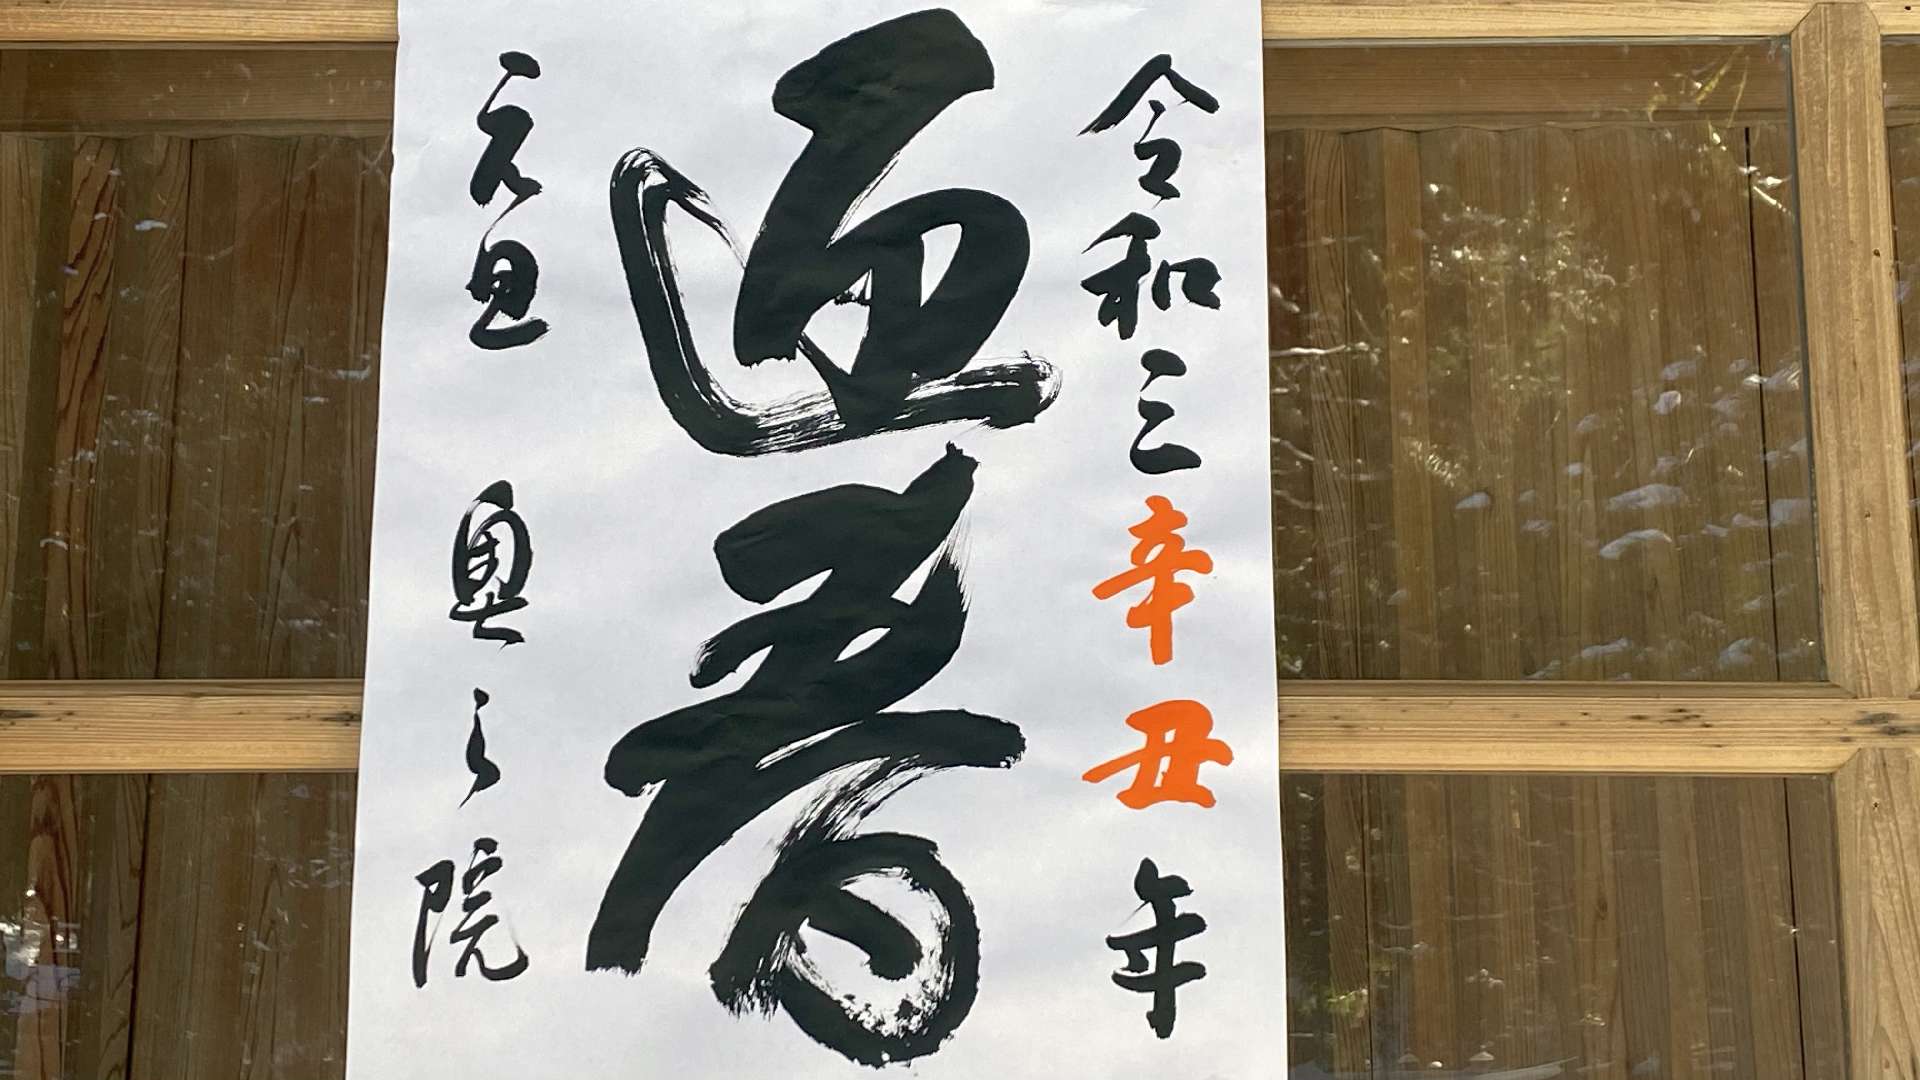 令和三辛丑年
迎春
元旦 奥之院